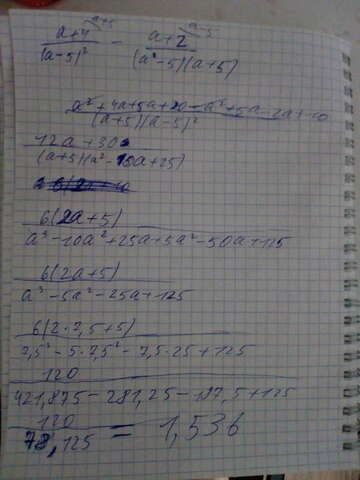 a+5 a-5
a+4/(a-5)² - a+2/(a²-5)(a+5)
a²+4a+5a+20-a²+5a-2a+10/(a+5)(a-5)²
12a+30/(a+5)(a²-10a+25)
6(2a+5)/a³-10a²+25a+5a²-50a+125
6(2a+5)/a³-5a²-25a+125
6(2·7,5+5)/7,5³-5·7,5²-7,5·25+125
120/421,875-281,25-187,5+125
120/78,125 = 1,536